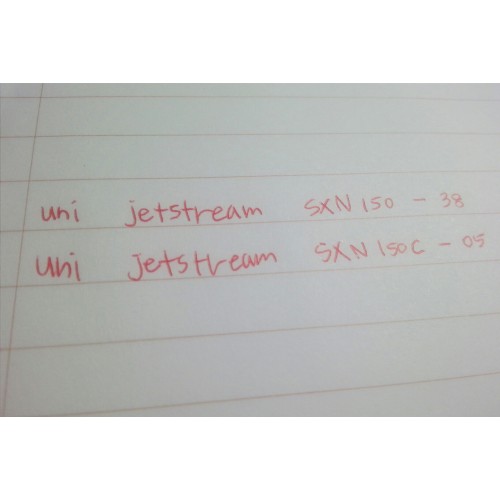 uni jetstream SXN 150 - 38
uni Jetstream SXN 150C - 05